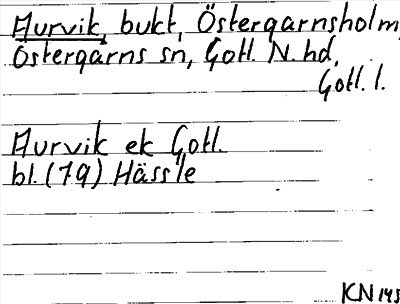 Aurvik, bukt, Östergarnsholm,
Östergarns sn, Gotl. N. hd,
Gotl. l.
Aurvik ek Gotl.
bl. (79) Hässle
KN 145